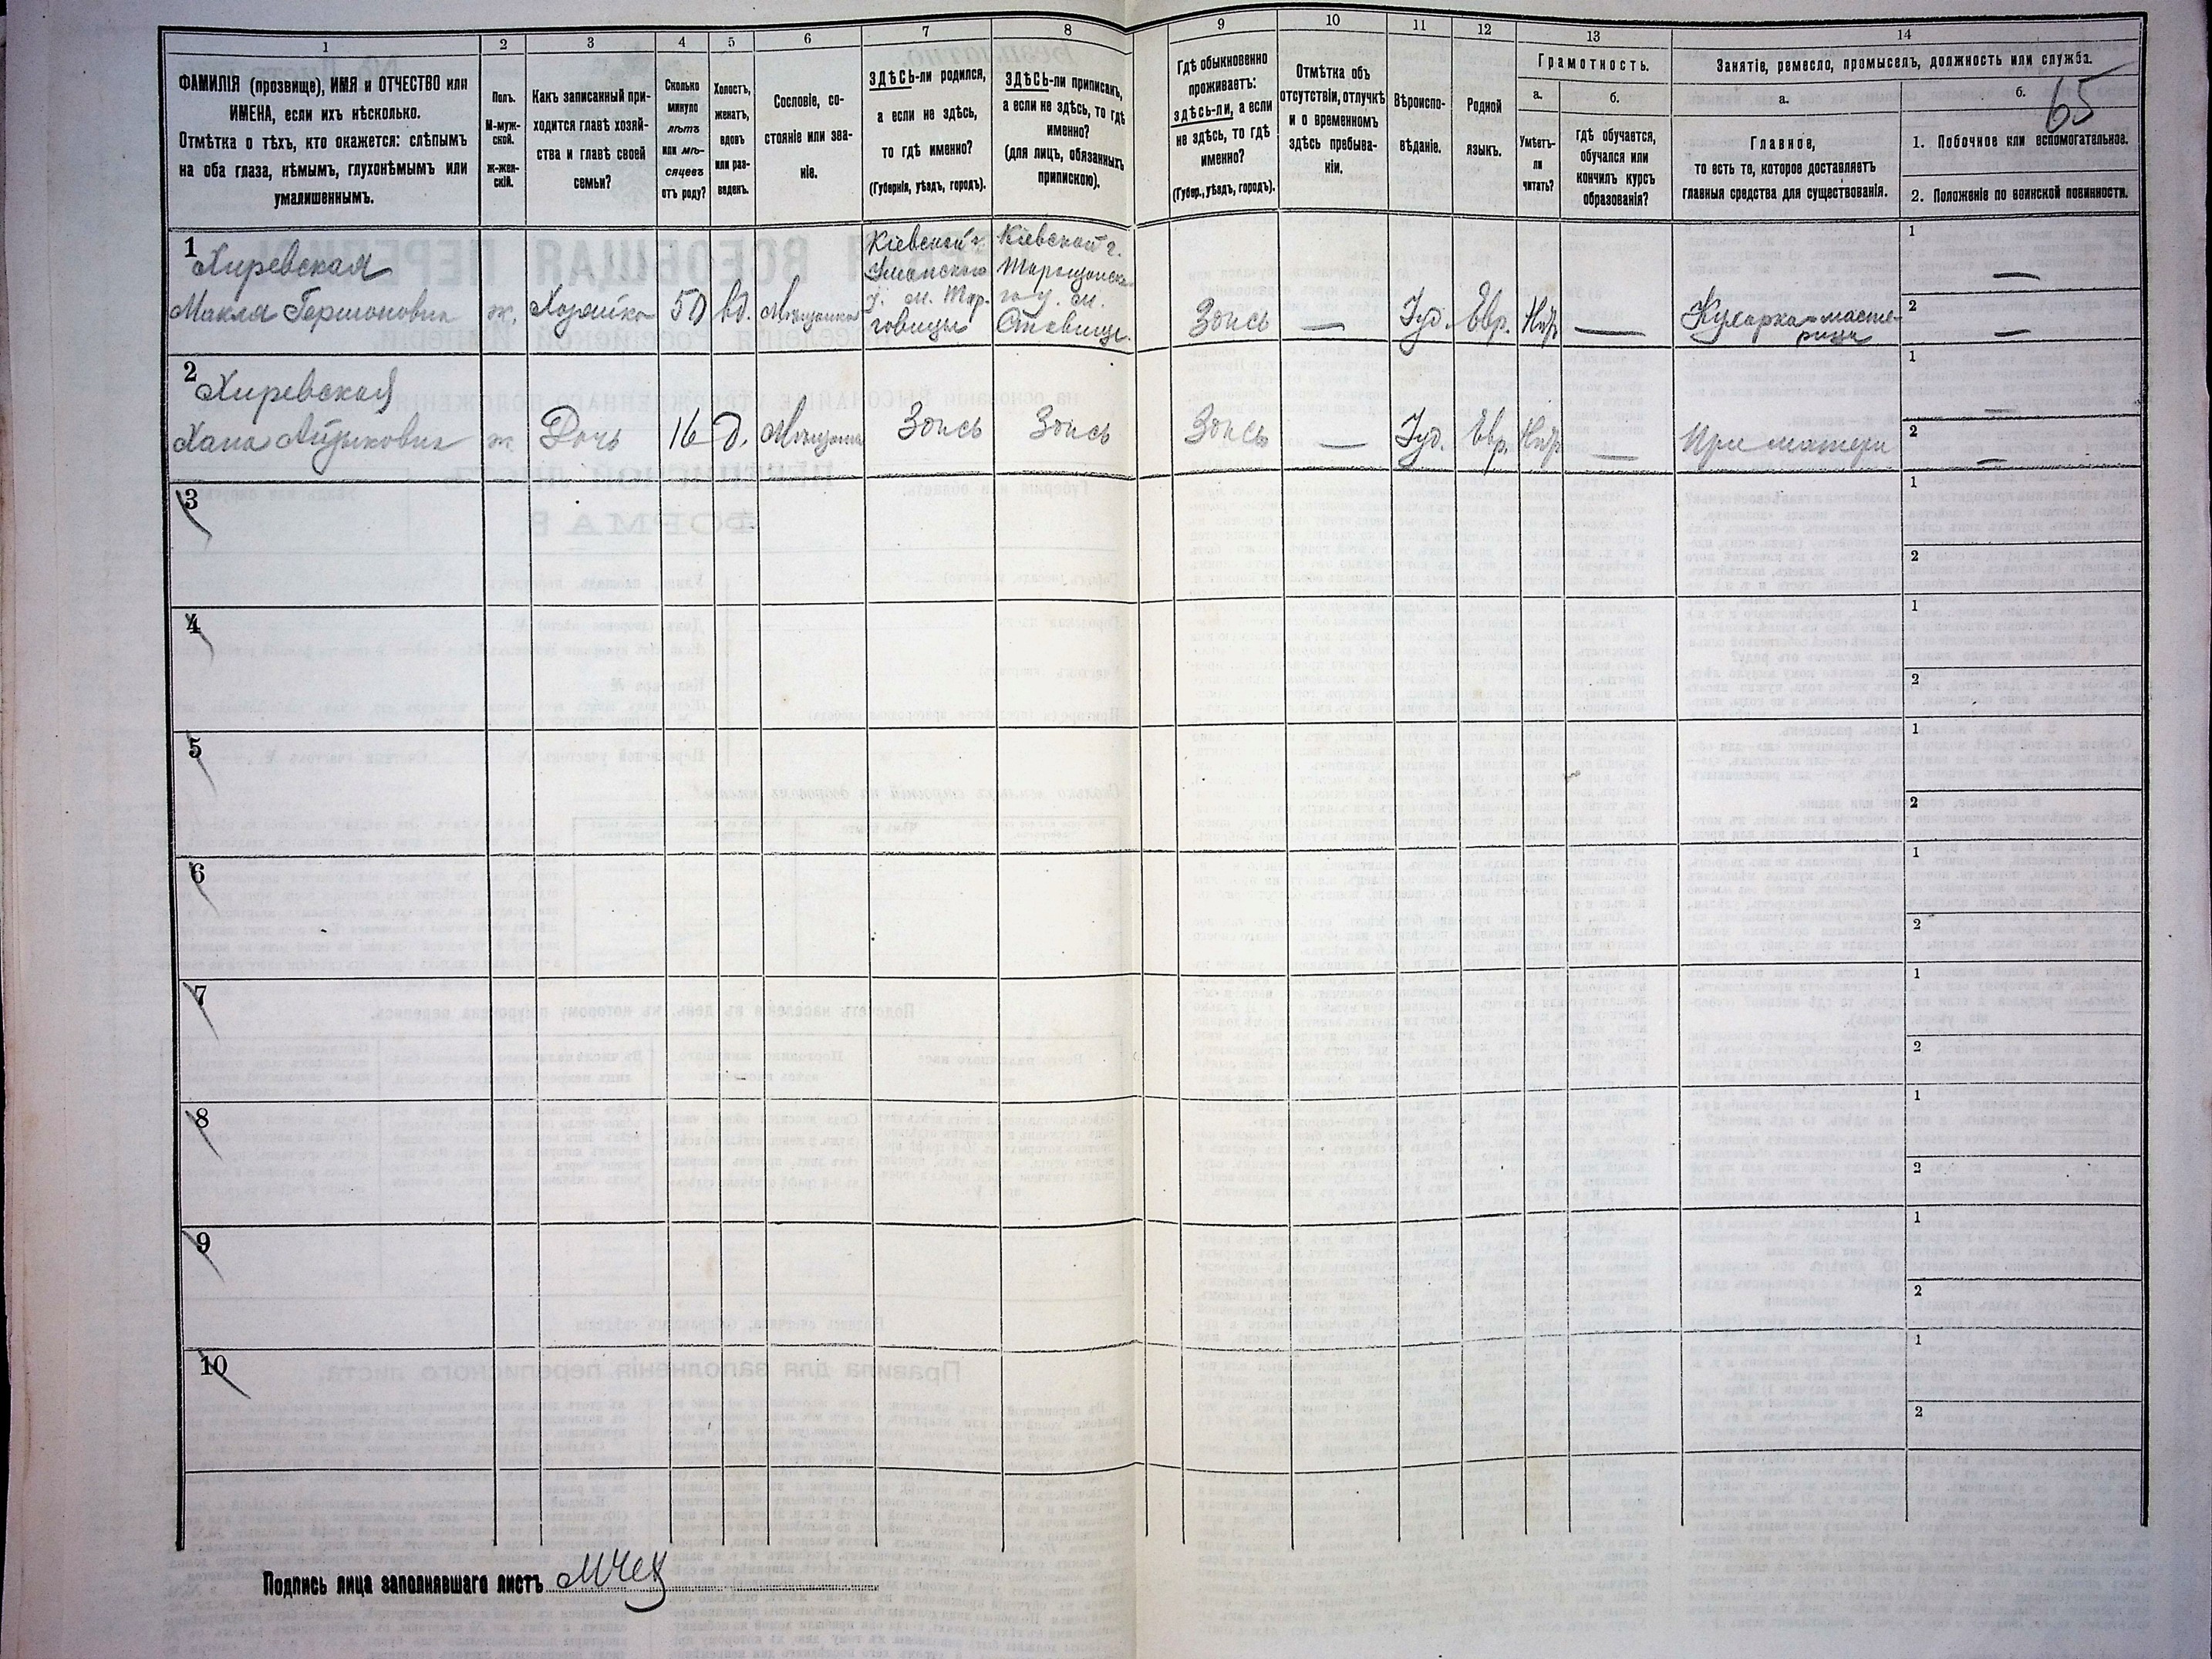 1
2
3
4
5
6
7
8
9
10
11
12
13
14
ФАМИЛІЯ (прозвище), ИМЯ и ОТЧЕСТВО или
ИМЕНА, если ихъ нѣсколько.
Отмѣтка о тѣхъ, кто окажется: слѣпымъ
на оба глаза, нѣмымъ, глухонѣмымъ или
умалишеннымъ.
Полъ.
М-муж-
ской.
ж-жен-
скій.
Какъ записанный при-
ходится главѣ хозяй-
ства и главѣ своей
семьи?
Сколько
минуло
лѣтъ
или мѣ-
сяцевъ
отъ роду?
Холостъ,
женатъ,
вдовъ
или раз-
веденъ.
Сословіе, со-
стояніе или зва-
ніе.
ЗДѢСЬ-ли родился,
а если не здѣсь,
то гдѣ именно?
(Губернія, уѣздъ, городъ).
ЗДѢСЬ-ли приписанъ,
а если не здѣсь, то гдѣ
именно?
(для лицъ, обязанныхъ
припискою).
Гдѣ обыкновенно
проживаетъ:
здѣсь-ли, а если
не здѣсь, то гдѣ
именно?
(Губер., уѣздъ, городъ).
Отмѣтка объ
отсутствіи, отлучкѣ
и о временномъ
здѣсь пребыва-
ніи.
Вѣроиспо-
вѣданіе.
Родной
языкъ.
Грамотность.
а.
б.
Умѣетъ-
ли
читать?
гдѣ обучается,
обучался или
кончилъ курсъ
образованія?
Занятіе, ремесло, промыселъ, должность или служба.
а.
б.
65
Главное,
то есть то, которое доставляетъ
главныя средства для существованія.
1. Побочное или вспомогательное.
2. Положеніе по воинской повинности.
1
Хиревская
Макля Гершоновна
ж.
Хозяйка
50
вд.
Мѣщанка
Кіевской г.
Уманскаго
у. м. Тор-
говицы
Кіевской г.
Таращанска-
го у. м.
Ставище.
Здѣсь
—
Іуд.
Евр.
Нѣт
—
Кухарка-масте-
рица
1 —
2 —
2
Хиревская
Хана Айзиковна
ж.
Дочь
16
д.
Мѣщанка
Здѣсь
Здѣсь
Здѣсь
—
Іуд.
Евр.
Нѣт
—
При матери
1 —
2 —
3
1
2
4
1
2
5
1
2
6
1
2
7
1
2
8
1
2
9
1
2
10
1
2
Подпись лица заполнявшаго листъ